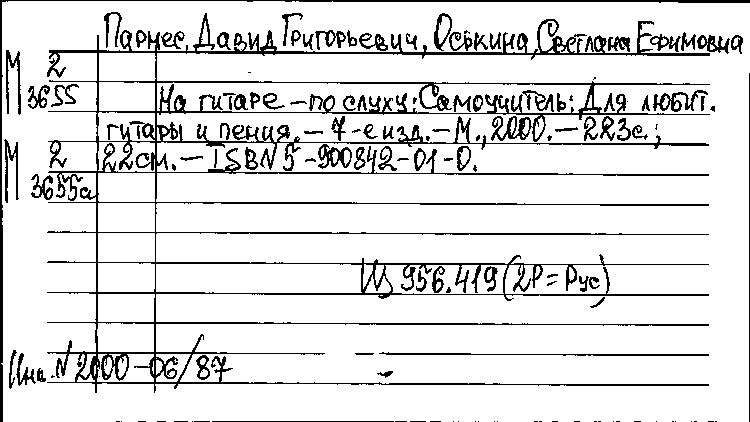 Парнес, Давид Григорьевич, Оськина, Светлана Ефимовна
М 2
3655 На гитаре – по слуху: Самоучитель: Для любит.
гитары и пения. – 7-е изд. – М., 2000. – 223с.;
М 2 22см. – ISBN 5-900842-01-0.
3655а
Щ 956.419 (2Р=Рус)
Инв. N 2000-06/87